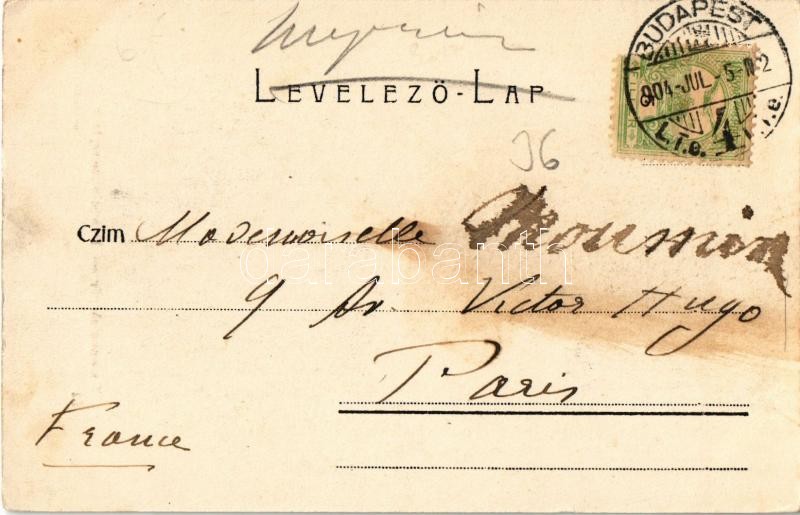 BUDAPEST
904-JUL. 5-N2
LEVELEZŐ-LAP
36
Czim Mademoiselle Thoumin
9 Av Victor Hugo
Paris
France
darabanth